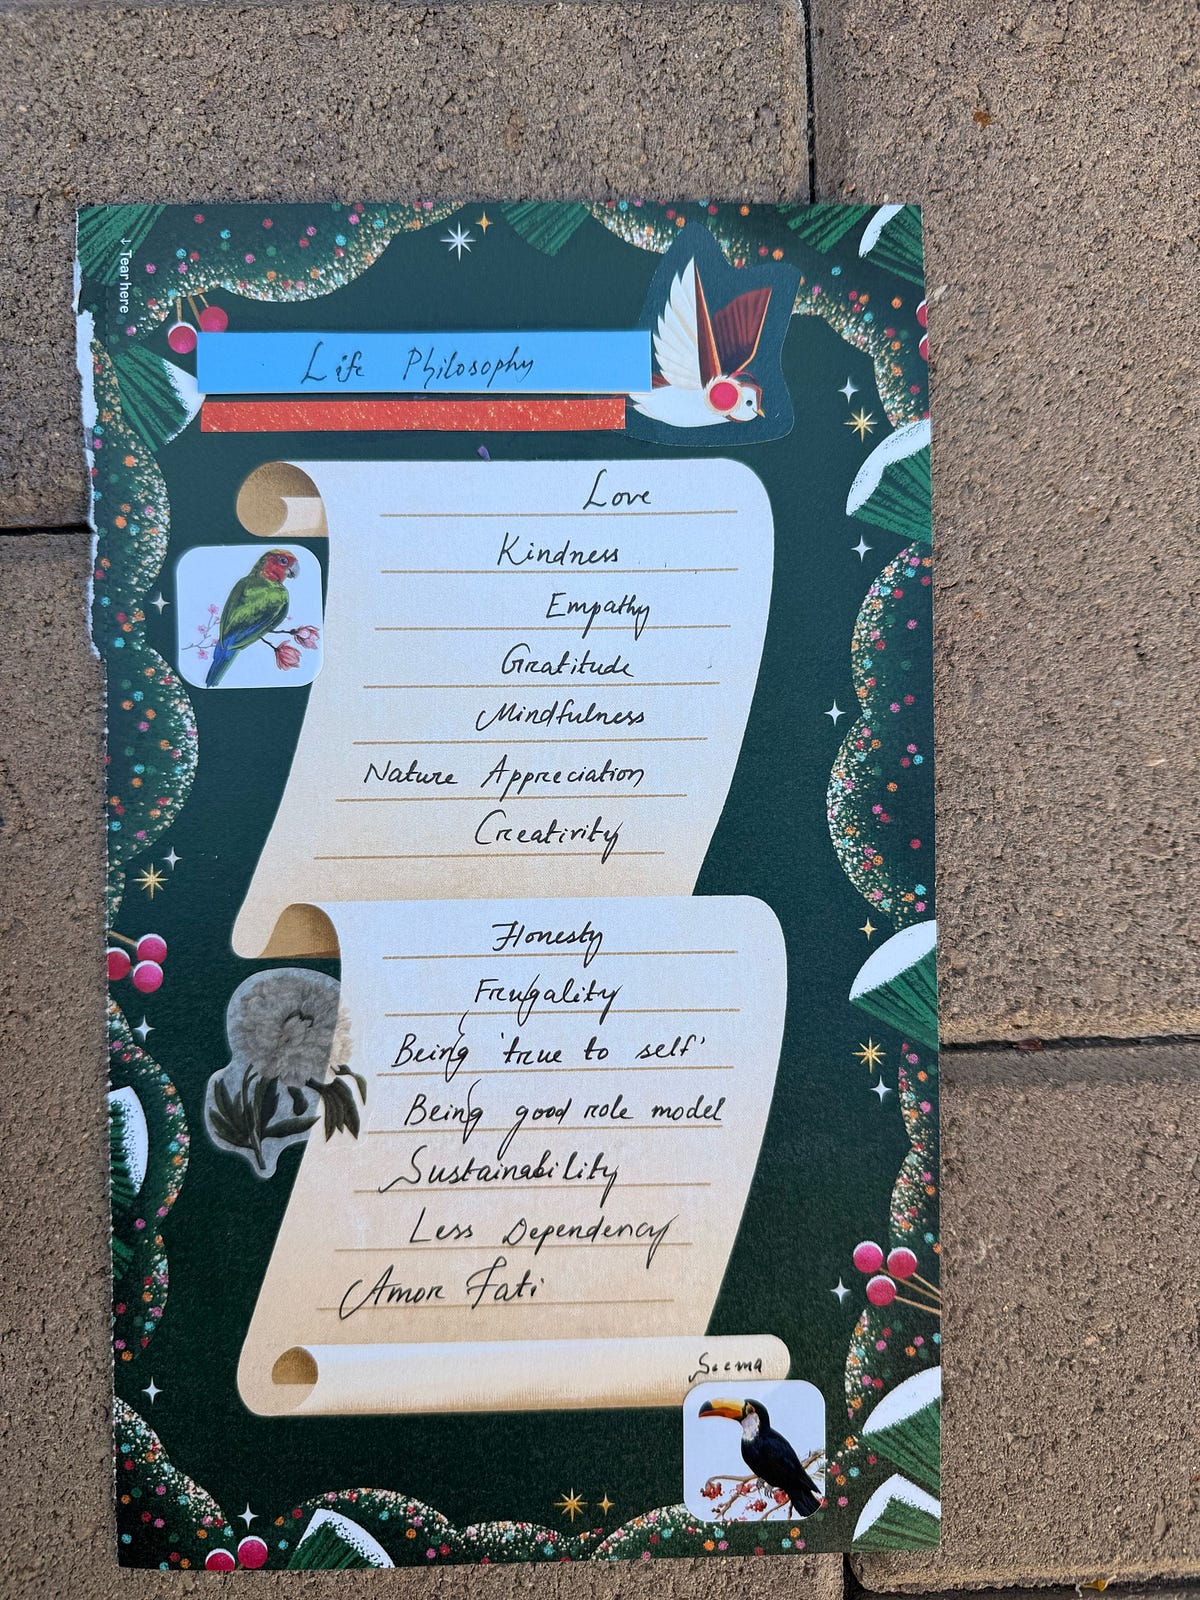 J Tear here
Life Philosophy
Love
Kindness
Empathy
Gratitude
Mindfulness
Nature Appreciation
Creativity
Honesty
Frugality
Being 'true to self'
Being good role model
Sustainability
Less Dependency
Amor Fati
Seema